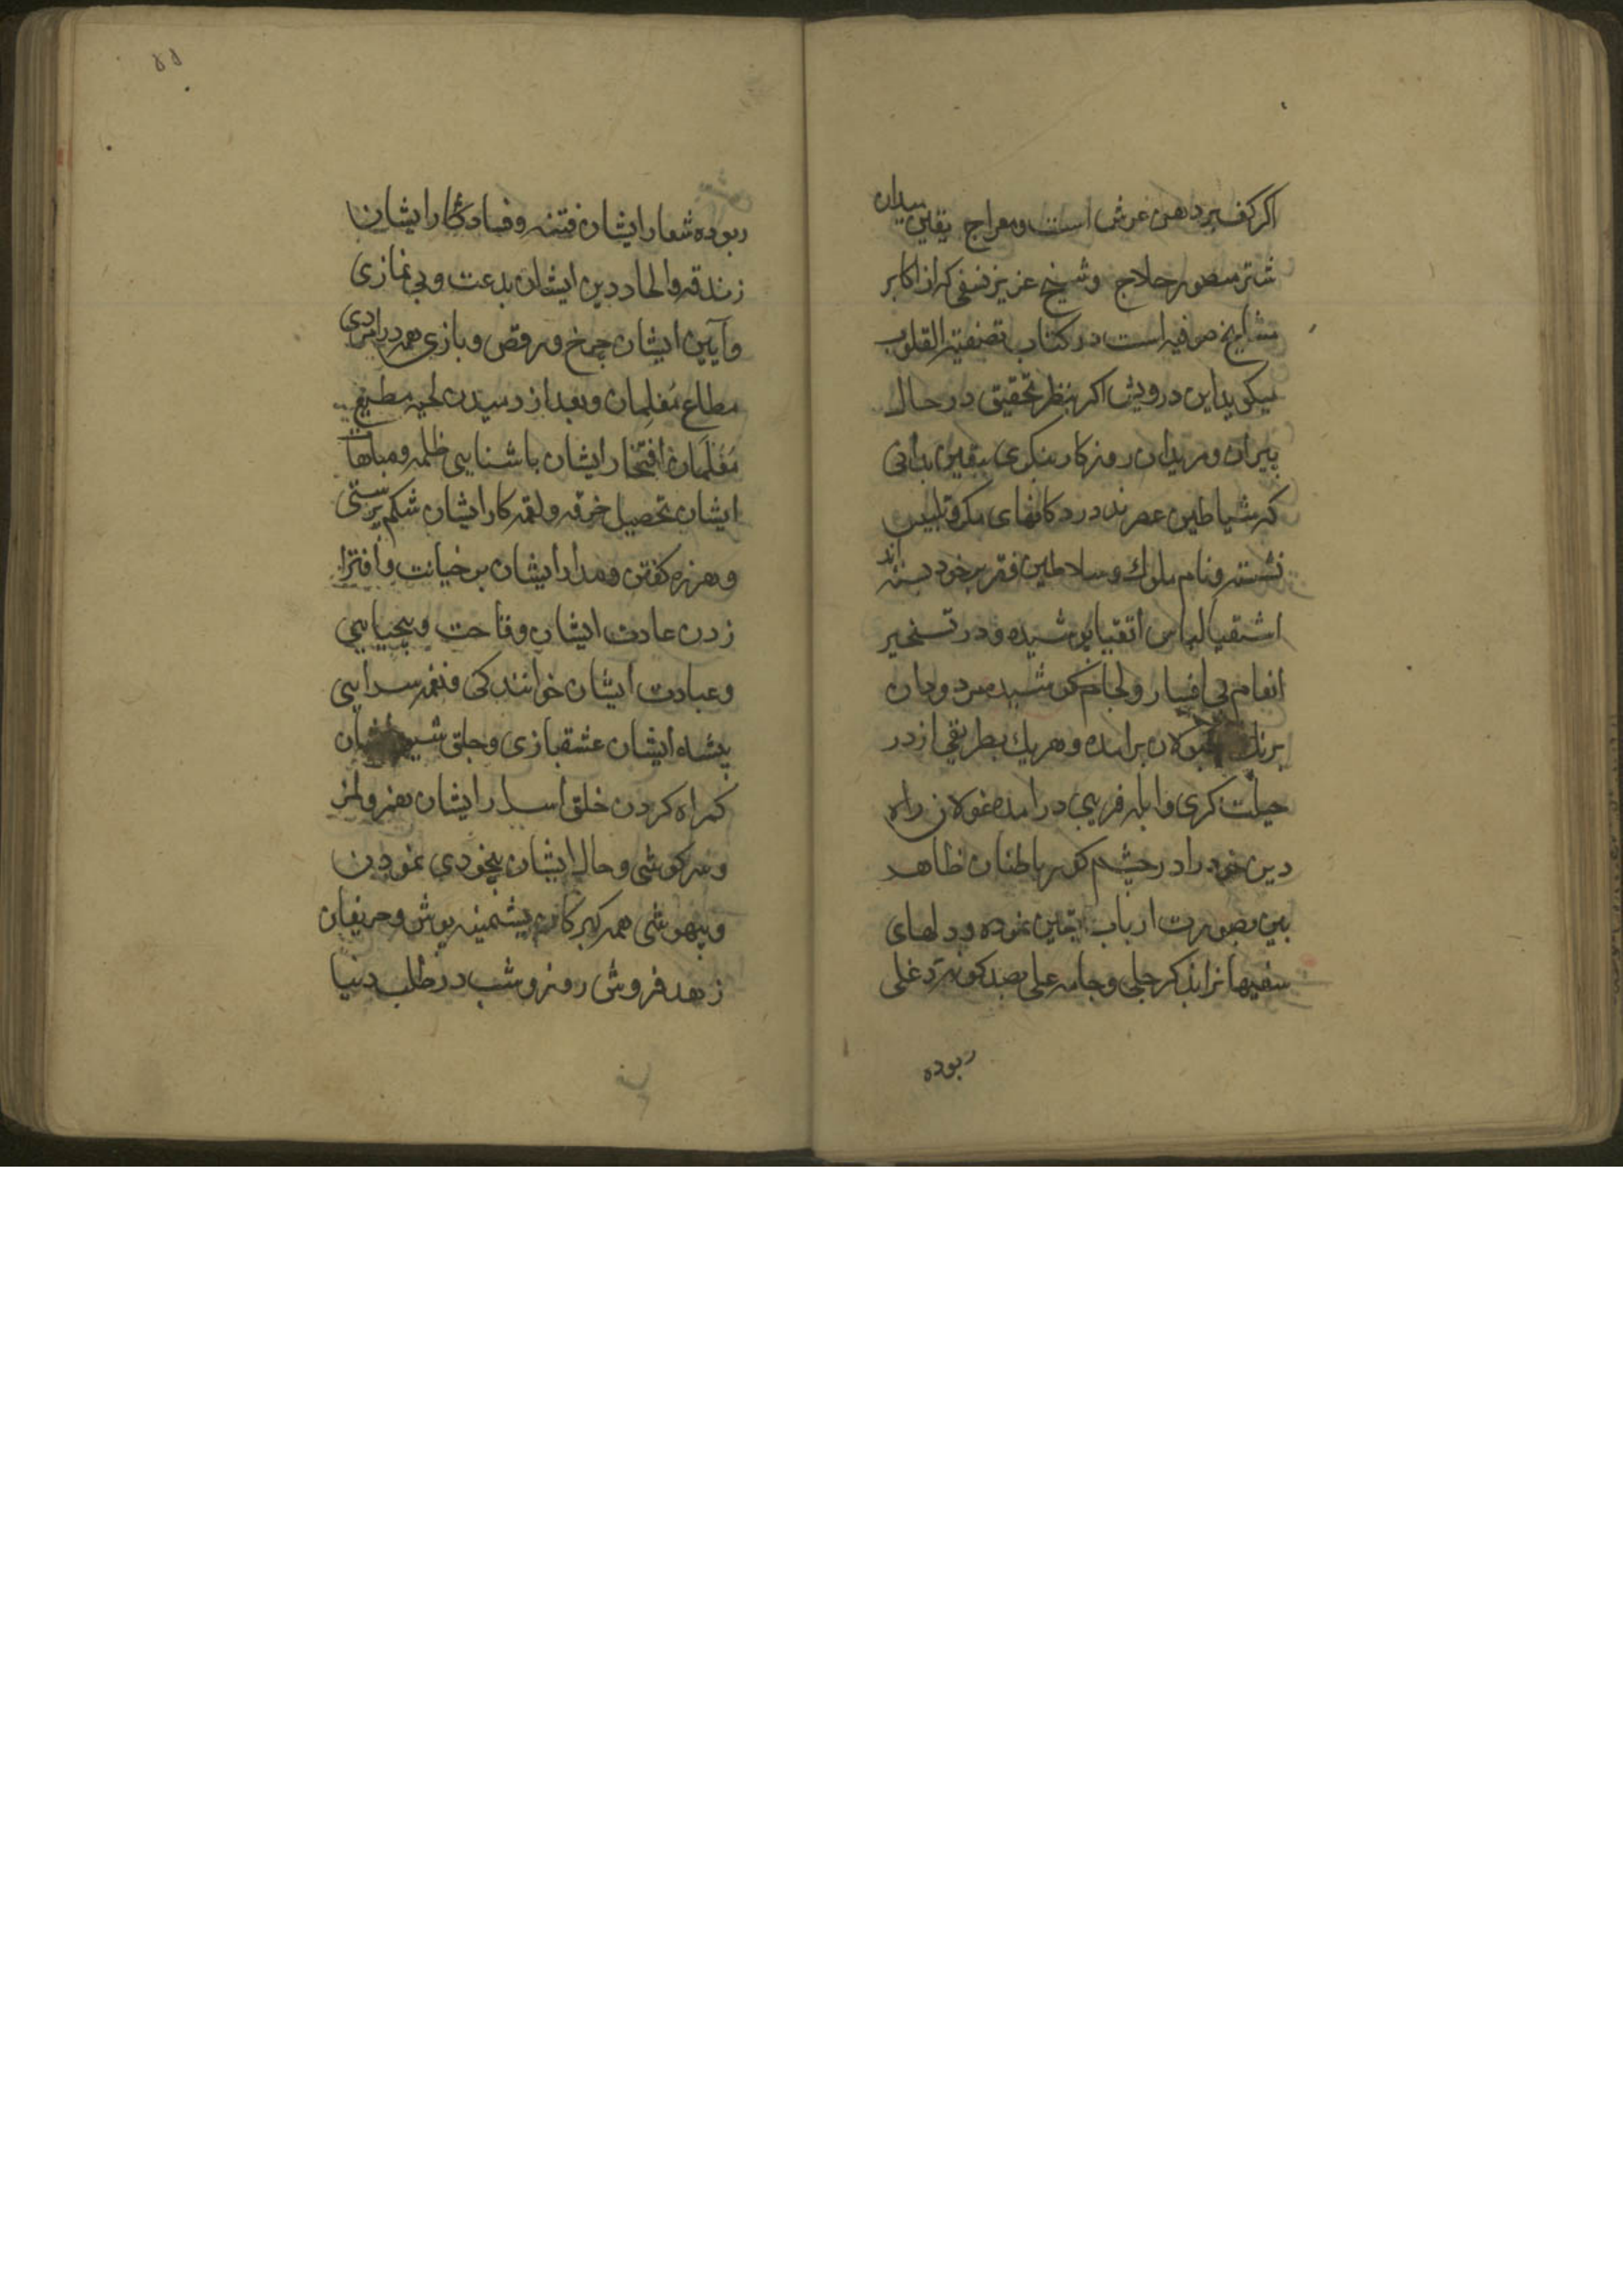 اکر کف بر دهن عرش است و معراج یقین میدان
شتر منصور حلاج وشیخ عزیز نسفی که از اکابر
مشایخ صوفیه است در کتاب تصفیة القلوب
میکوید این درویش اکر بنظر تحقیق در حال
پیران و مریدان روزکار بنکری بیقین بدانی
که شیاطین عصرند در دکانهای مکر و تلبیس
نشسته و نام ملوک و سلاطین فقر بر خود بسته اند
اشقیا لباس اتقیا پوشیده و در تسخیر
انعام بی افسار و لجام کوشیده مردودان
برنک مقبولان برامده و هریک بطریقی از در
حیلت کری و ابله فریبی درامده غولان راه
دین خود را در چشم کور باطنان ظاهر
بین بصورت ارباب یقین نموده و دلهای
سفیهانرا بذکر جلی و جامه علی بصد کونه دغلی
ربوده
۵۵
ربوده شعار ایشان فتنه و فساد کار ایشان
زندقه والحاد دین ایشان بدعت و بی نمازی
و آیین ایشان چرخ و رقص و بازی همه در امردی
مطاع مُغلِمان و بعد از رسیدن لحیه مطیع
مُغلَمان افتخار ایشان باشنایی ظلمه و مباهات
ایشان تحصیل خرقه و لقمه کار ایشان شکم پرستی
و هرزه کفتن و مدار ایشان بر خیانت و افترا
زدن عادت ایشان وقاحت و بیحیایی
و عبادت ایشان خوانندکی و نغمه سرایی
پیشه ایشان عشقبازی و جلق شیوه ایشان
کمراه کردن خلق اسرار ایشان بغمز و لمز
و سرکوشی و حال ایشان بیخودی نمودن
و بیهوشی همه کبرکان پشمینه پوش و حریفان
زهد فروش روز و شب در طلب دنیا